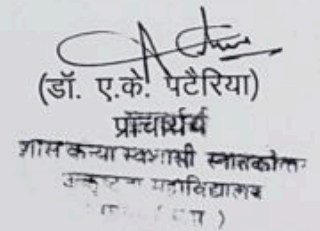 (डॉ. ए.के. पटैरिया)
प्राचार्य
शास कन्या स्वशासी स्नातकोत्तर
महाविद्यालय